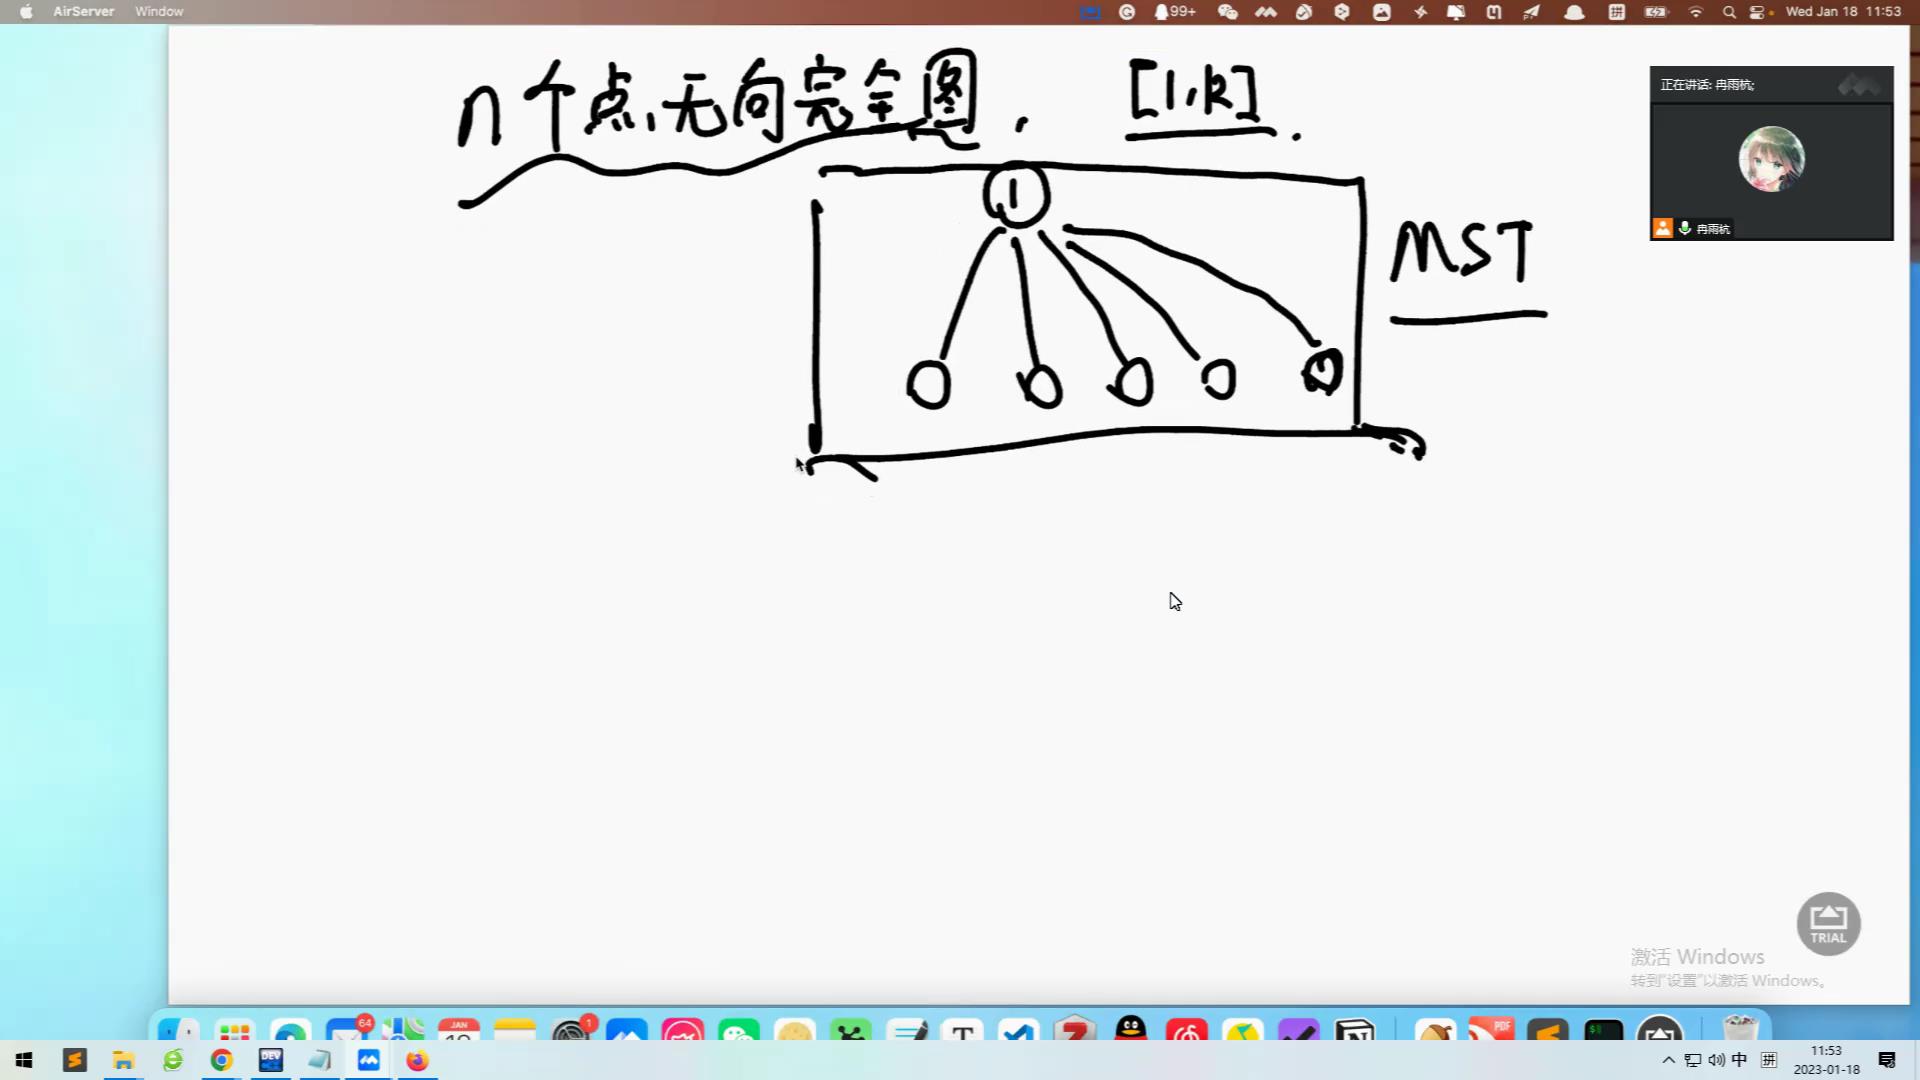 AirServer Window
99+
Wed Jan 18 11:53
n个点,无向完全图. [1,k].
正在讲话: 冉雨杭;
冉雨杭
1
MST
TRIAL
激活 Windows
转到"设置"以激活 Windows。
64
JAN
1
PDF
DEV
中
拼
11:53
2023-01-18